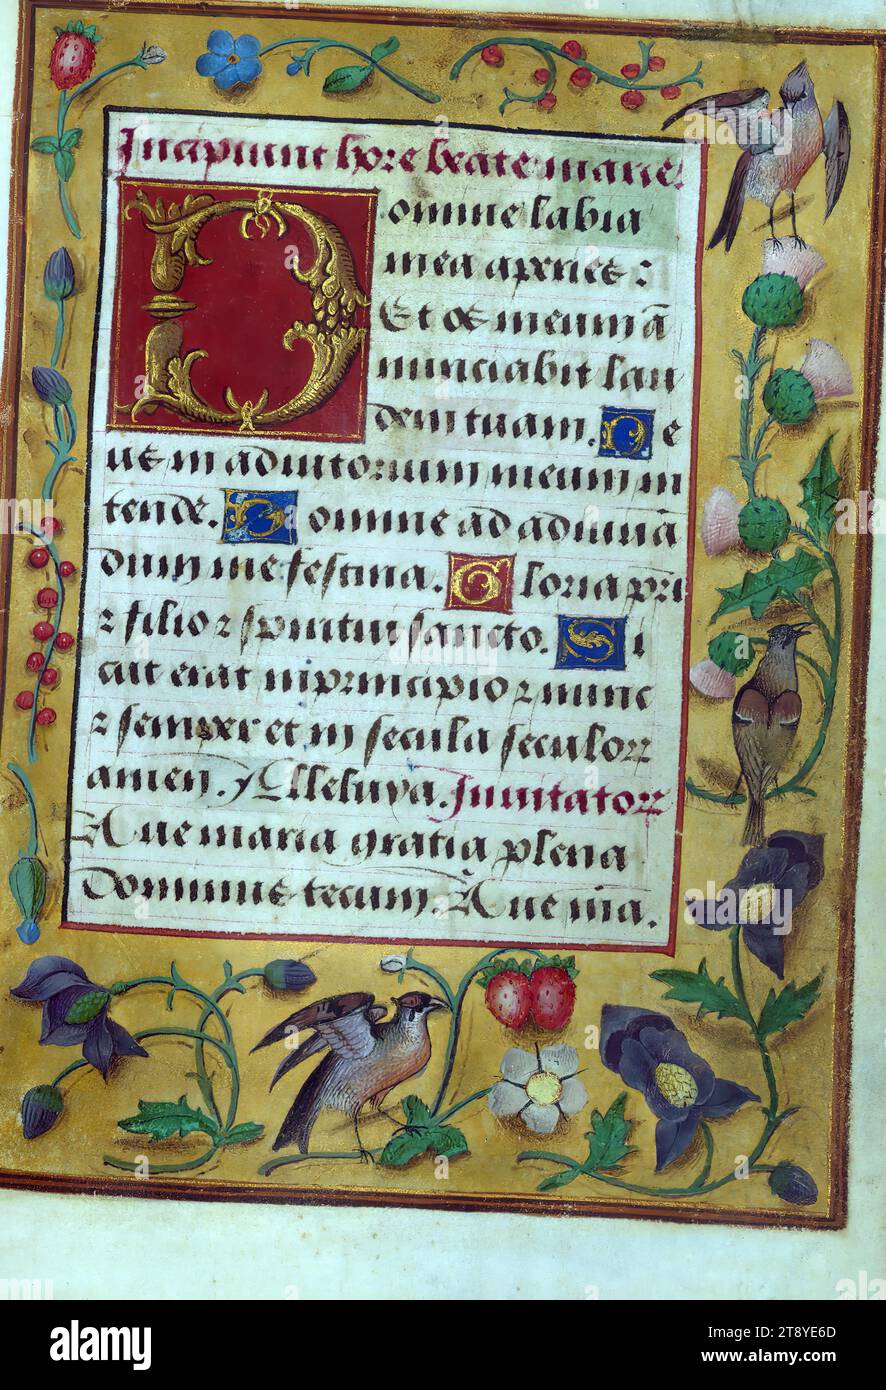 Incipiunt hore beate marie.
Domine labia
mea aperies:
Et os meum ā
nunciabit lau
dem tuam. De
us in adiutorium meum in
tende. Domine ad adiuuā
dum me festina. Gloria pr̄i
⁊ filio ⁊ spiritui sancto. Si
cut erat in principio ⁊ nunc
⁊ semper et in secula seculorꝝ
amen. Alleluya. Inuitatorꝝ
Aue maria gratia plena
dominus tecum. Aue m̄a.
alamy
Image ID: 2T8YE6D
www.alamy.com